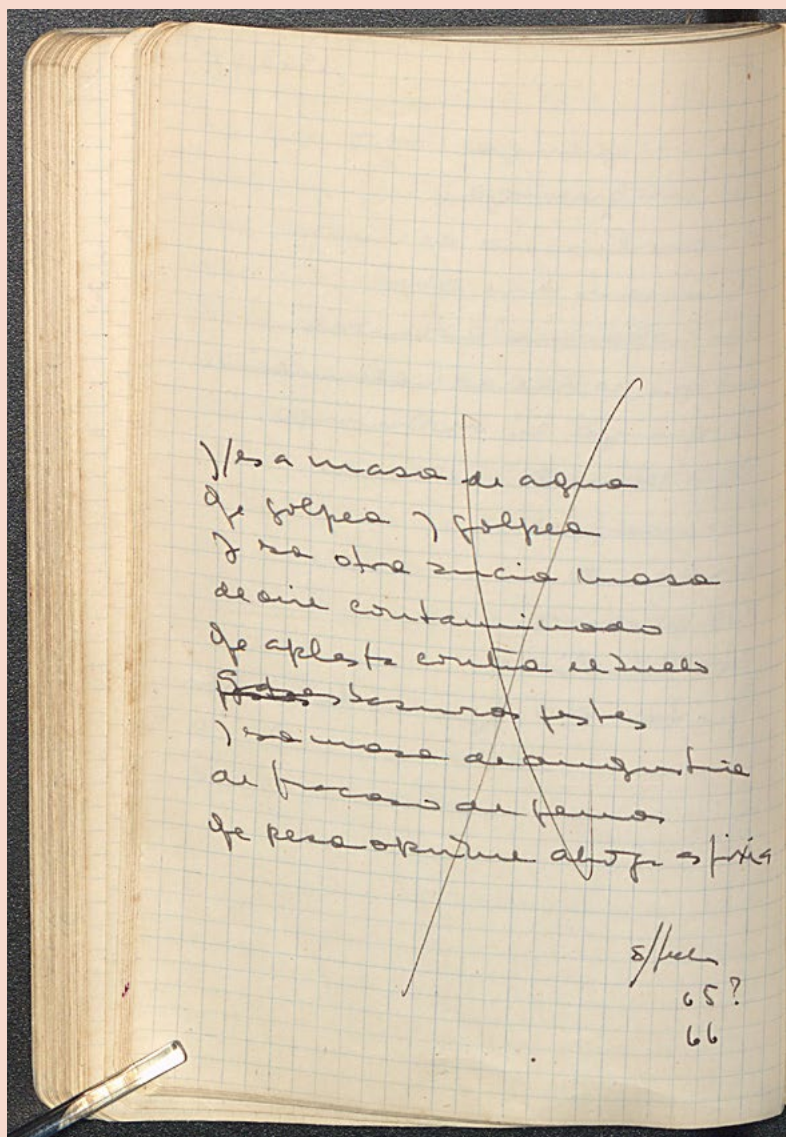 y esa masa de agua
qe golpea y golpea
y esa otra sucia masa
de aire contaminado
qe aplasta contra el suelo
basuras pestes
y esa masa de angustia
de fracaso de penas
qe pesa oprime ahoga asfixia
s/fecha
65?
66